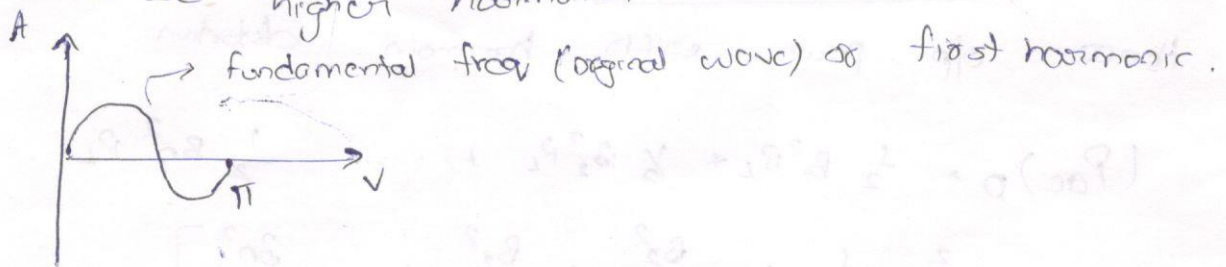 higher
A
→ fundamental freq (original wave) or first harmonic.
π
V